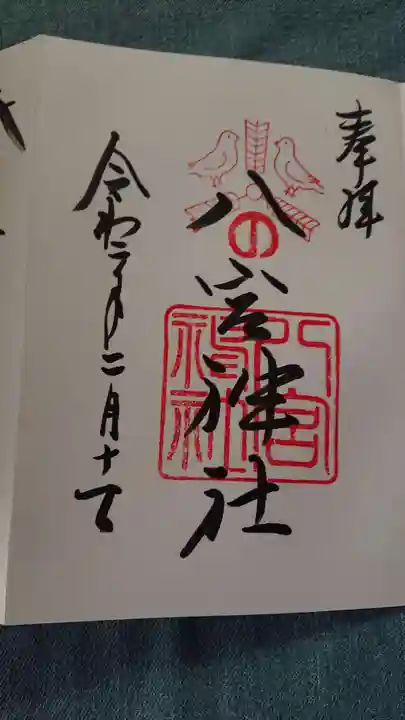 奉拝
八宮神社
の
八宮
神社
令和二年二月十一日